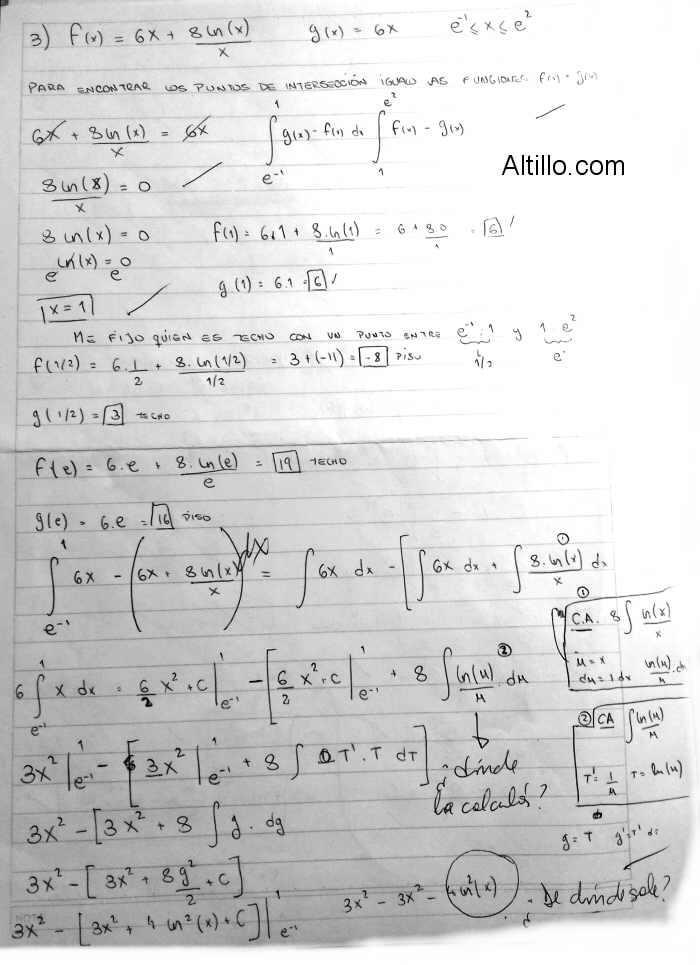 3) f(x) = 6x + 8 ln(x)/x    g(x) = 6x    e⁻¹ ≤ x ≤ e²
PARA ENCONTRAR LOS PUNTOS DE INTERSECCIÓN IGUALO LAS FUNCIONES f(x) = g(x)
6x + 8 ln(x)/x = 6x    ∫_{e⁻¹}^{1} g(x) - f(x) dx ∫_{1}^{e²} f(x) - g(x)
Altillo.com
8 ln(8)/x = 0
8 ln(x) = 0    f(1) = 6.1 + 8.ln(1)/1 = 6 + 8.0/1 = 6
e^ln(x) = e^0    g(1) = 6.1 = 6
x = 1
ME FIJO QUIEN ES TECHO CON UN PUNTO ENTRE e⁻¹ ; 1 y 1 . e²
1/2    e
f(1/2) = 6.1/2 + 8.ln(1/2)/1/2 = 3 + (-11) = -8 PISO
g(1/2) = 3 TECHO
f(e) = 6.e + 8.ln(e)/e = 19 TECHO
g(e) = 6.e = 16 PISO
∫_{e⁻¹}^{1} 6x - (6x + 8 ln(x)/x) dx = ∫ 6x dx - [∫ 6x dx + ∫ 8.ln(x)/x dx ①
① C.A. 8 ∫ ln(x)/x
u = x
du = 1 dx    ln(u)/u . du
6 ∫_{e⁻¹}^{1} x dx = 6/2 x² + C |_{e⁻¹}^{1} - [6/2 x² + C |_{e⁻¹}^{1} + 8 ∫ ln(u)/u . du ②
② CA ∫ ln(u)/u
T' = 1/u    T = ln(u)
3x² |_{e⁻¹}^{1} - [3x² |_{e⁻¹}^{1} + 8 ∫ T' . T dT]
¿ dónde
la calculás?
g = T    g' = T'
3x² - [3x² + 8 ∫ g . dg
3x² - [3x² + 8g²/2 + C]
3x² - [3x² + 4 ln²(x) + C] |_{e⁻¹}^{1}    3x² - 3x² - 4 ln²(x)    ¿ De dónde sale?